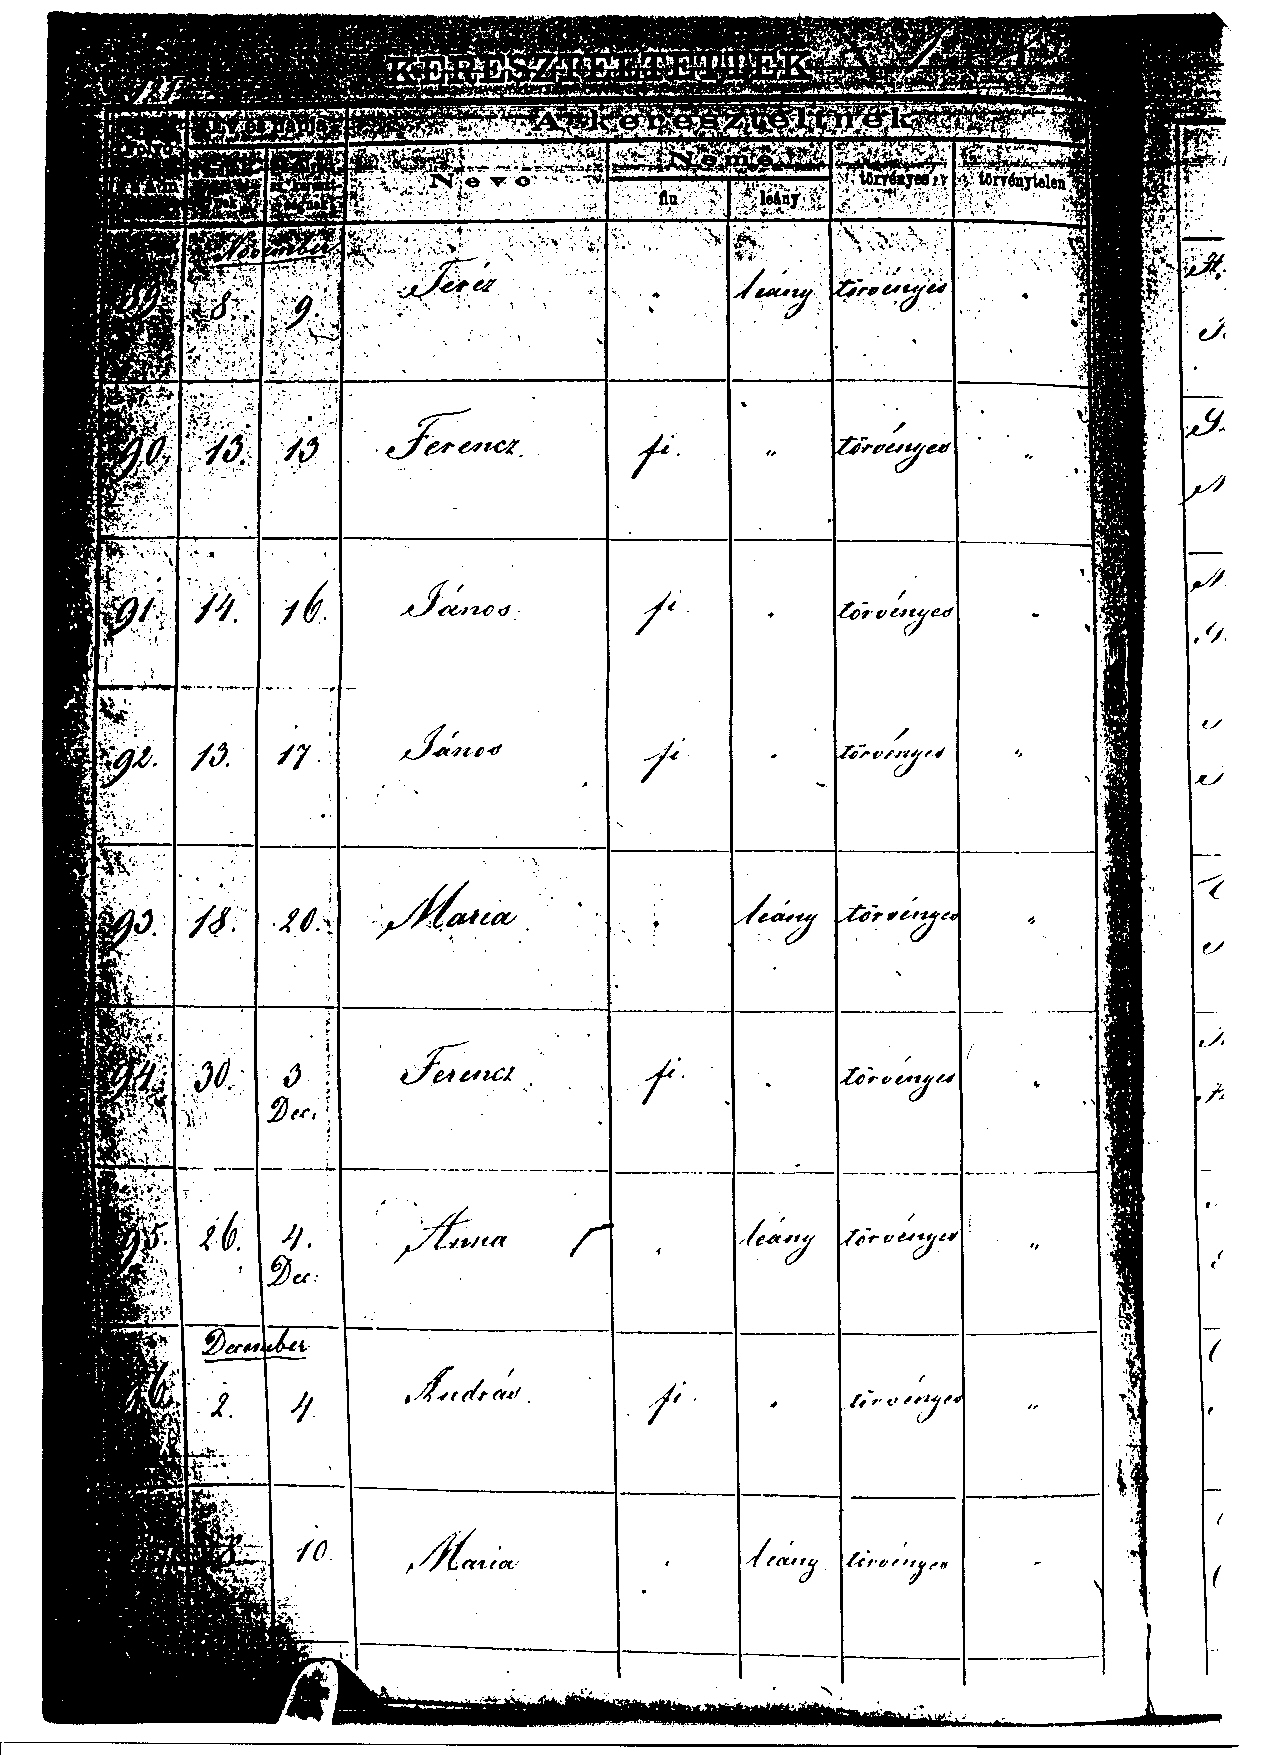 KERESZTELTETTEK
A kereszteltnek
Neve
Neme
fiu
leány
törvényes
törvénytelen
November
89. 8. 9. Teréz . leány törvényes .
90. 13. 13 Ferencz. fi. " törvényes "
91. 14. 16. János. fi . törvényes "
92. 13. 17. János fi . törvényes "
93. 18. 20. Maria . leány törvényes "
94. 30. 3 Ferencz fi. . törvényes "
Dec.
95. 26. 4. Anna . leány törvényes "
Dec.
December
96. 2. 4. András. fi. . törvényes "
8. 10. Maria . leány törvényes "